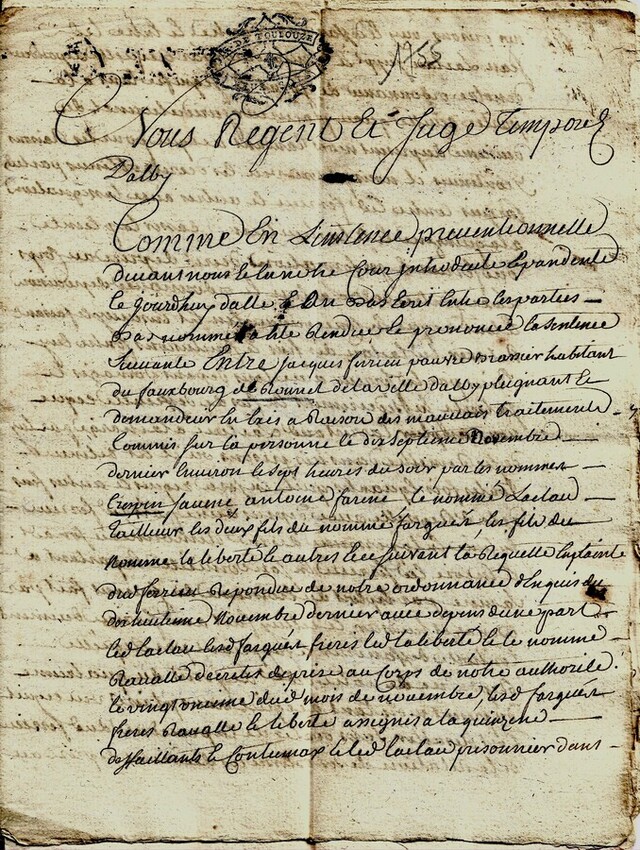 TOULOUZE
1755
Nous Regent Et Juge Temporel
Dalby
Comme En Linstence preuentionnelle
deuant nous Et en notre Cour introduite Et pandente
le jourdhuy datte
nommés a Eté Rendue, Et prononcé la sentence
Suivante Entre Jacques ferrieu pauvre Brassier habitant
du fauxbourg de la ville dalby pleignant Et
demandeur En Exces a Raison des mauvais traitements
Commis sur sa personne le dix septieme Novembre
dernier Environ les sept heures du soir par les nommes
antoine farene le nommé Laclau
tailleur les deux fils du nommé farguès, les fils du
Nommé la liberté Et autres Et ce suivant la Requette En plainte
dud ferrieu Repondue de notre ordonnance d'Enquis du
dixhuitieme Novembre dernier avec depens d'une part
Et led laclau lesd farguès freres led la liberté Et le nommé
Raualle decretes de prise au Corps de notre authorité
le vingtonzieme dud mois de novembre, lesd farguès
freres Raualle Et la liberté assignés a la quinzene
deffaillants Et Contumax Et led laclau prisonnier dans